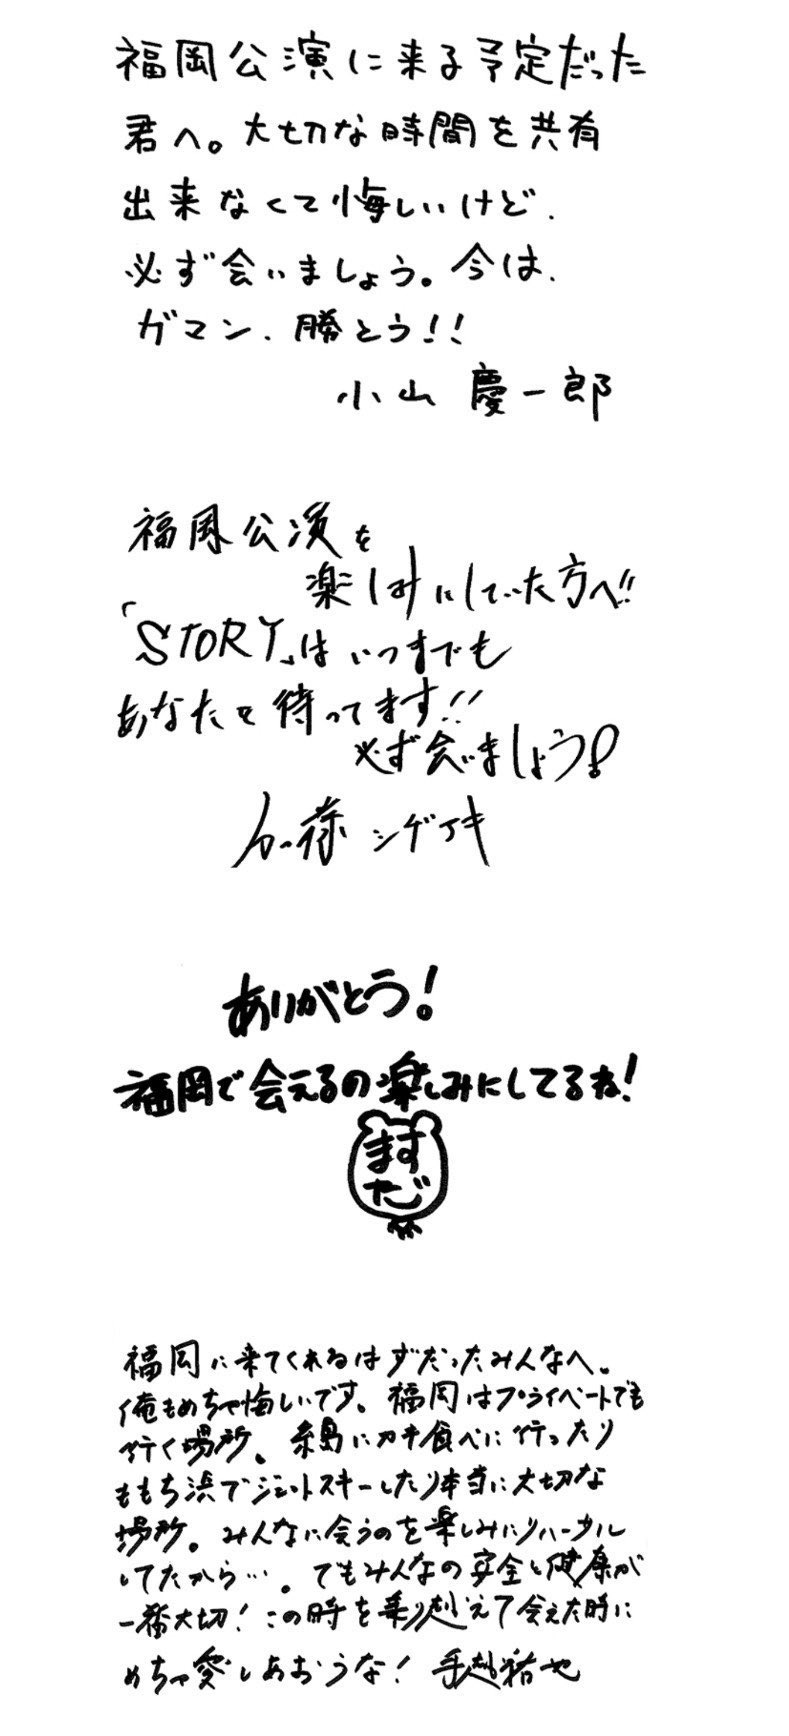 福岡公演に来る予定だった
君へ。大切な時間を共有
出来なくて悔しいけど、
必ず会いましょう。今は、
ガマン、勝とう!!
小山慶一郎
福岡公演を
楽しみにしていた方へ!!
「STORY」はいつまでも
あなたを待ってます!!
必ず会いましょう!
加藤シゲアキ
ありがとう!
福岡で会えるの楽しみにしてるね!
ます
だ
福岡に来てくれるはずだったみんなへ。
俺もめちゃ悔しいです。福岡はプライベートでも
行く場所。糸島にカキ食べに行ったり
ももち浜でジェットスキーしたり本当に大切な
場所。みんなに会うのを楽しみにリハーサル
してたから…。でもみんなの安全と健康が
一番大切!この時を乗り越えて会えた時に
めちゃ愛しあおうな!手越祐也